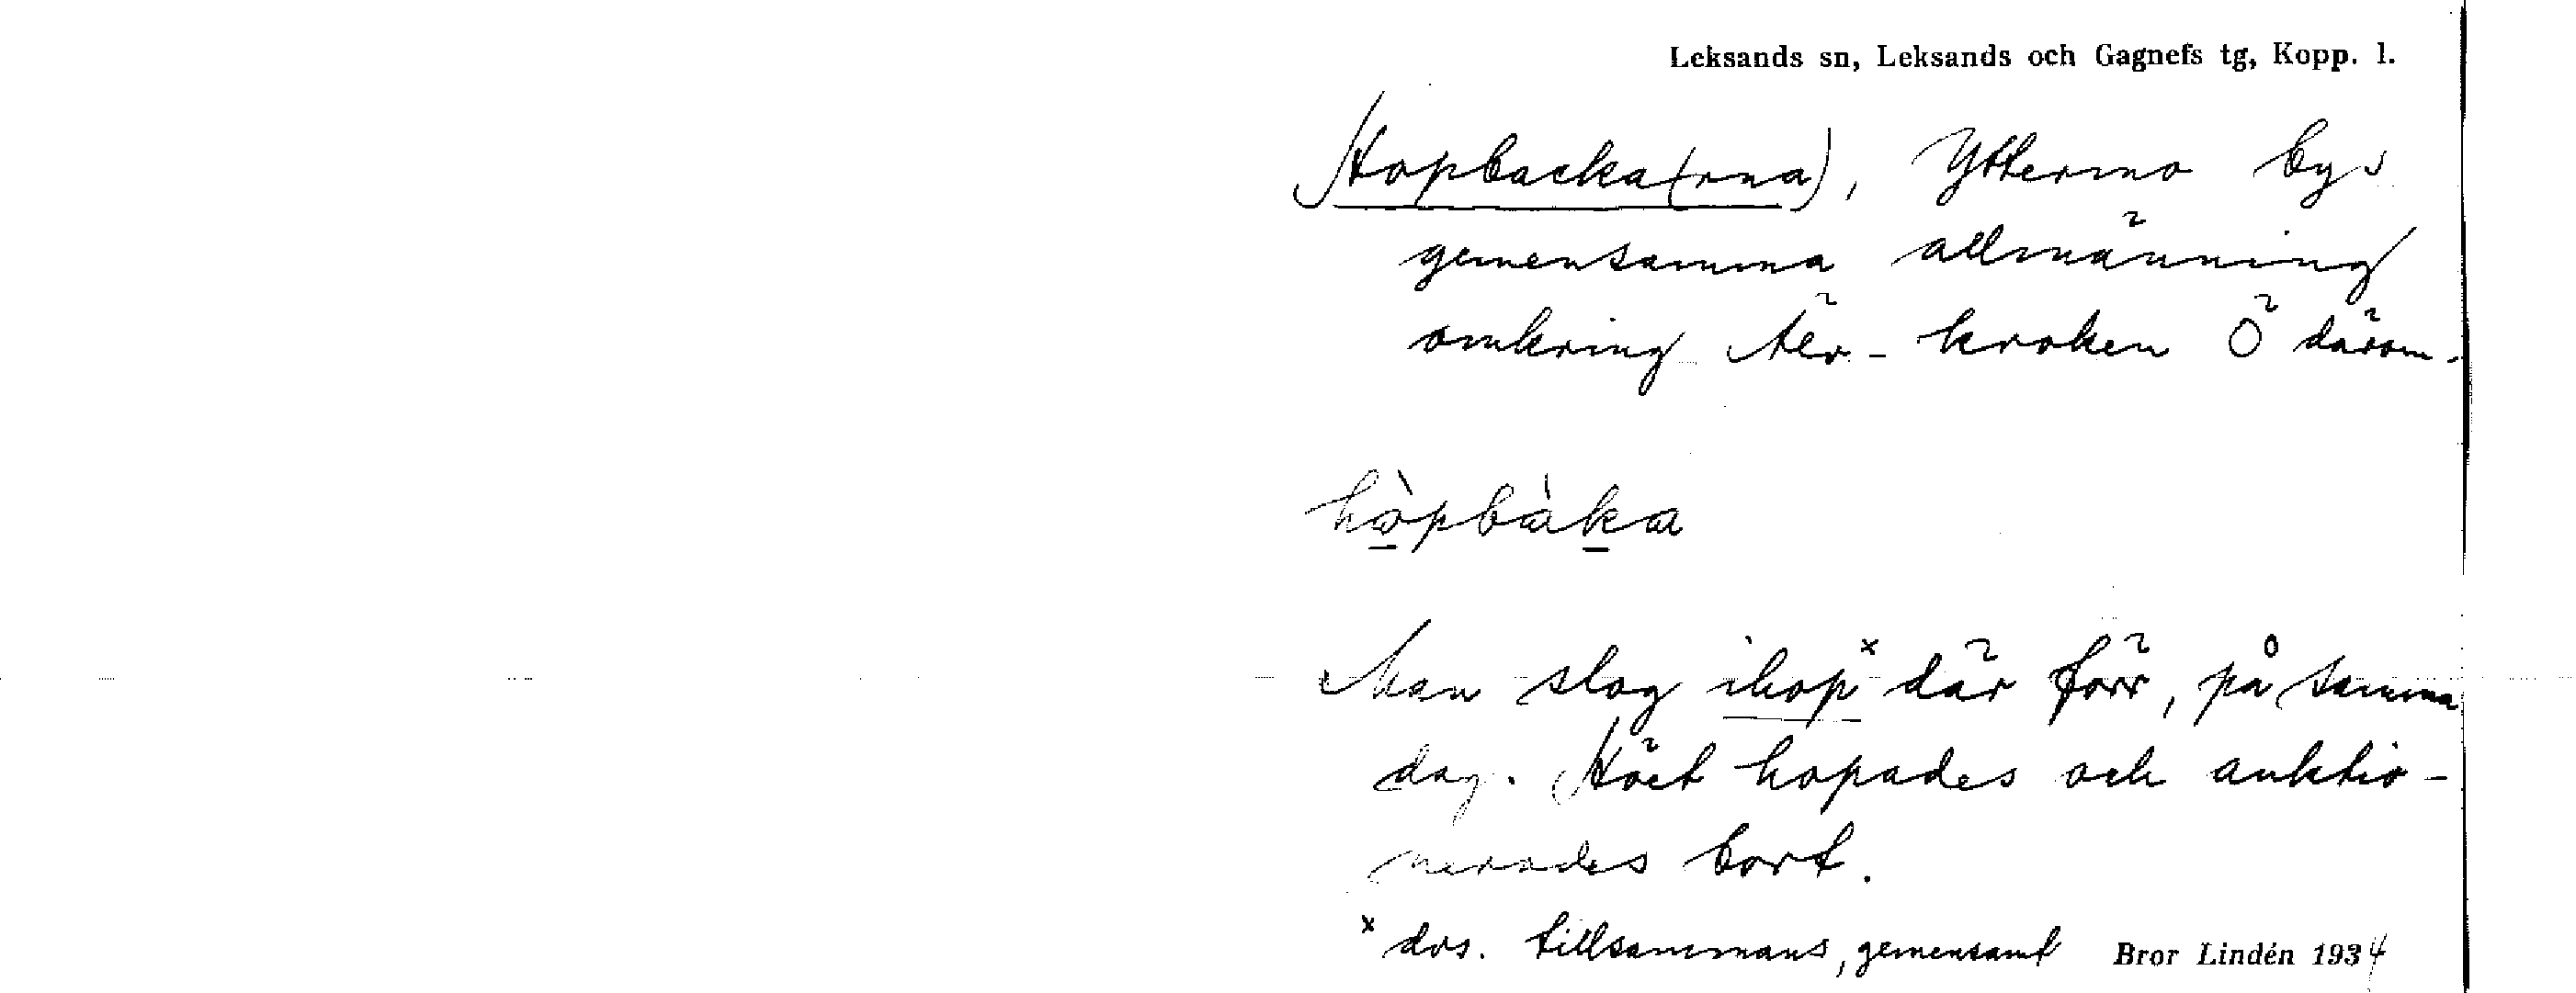 Leksands sn, Leksands och Gagnefs tg, Kopp. l.
Hopbacka(rna), Yttermo bys
gemensamma allmänning
omkring Älv-kroken Ö därom.
hòpbàka
Man slog ihop x där förr, på samma
dag. Höet hopades och auktio-
nerades bort.
x dvs. tillsammans, gemensamt Bror Lindén 1934